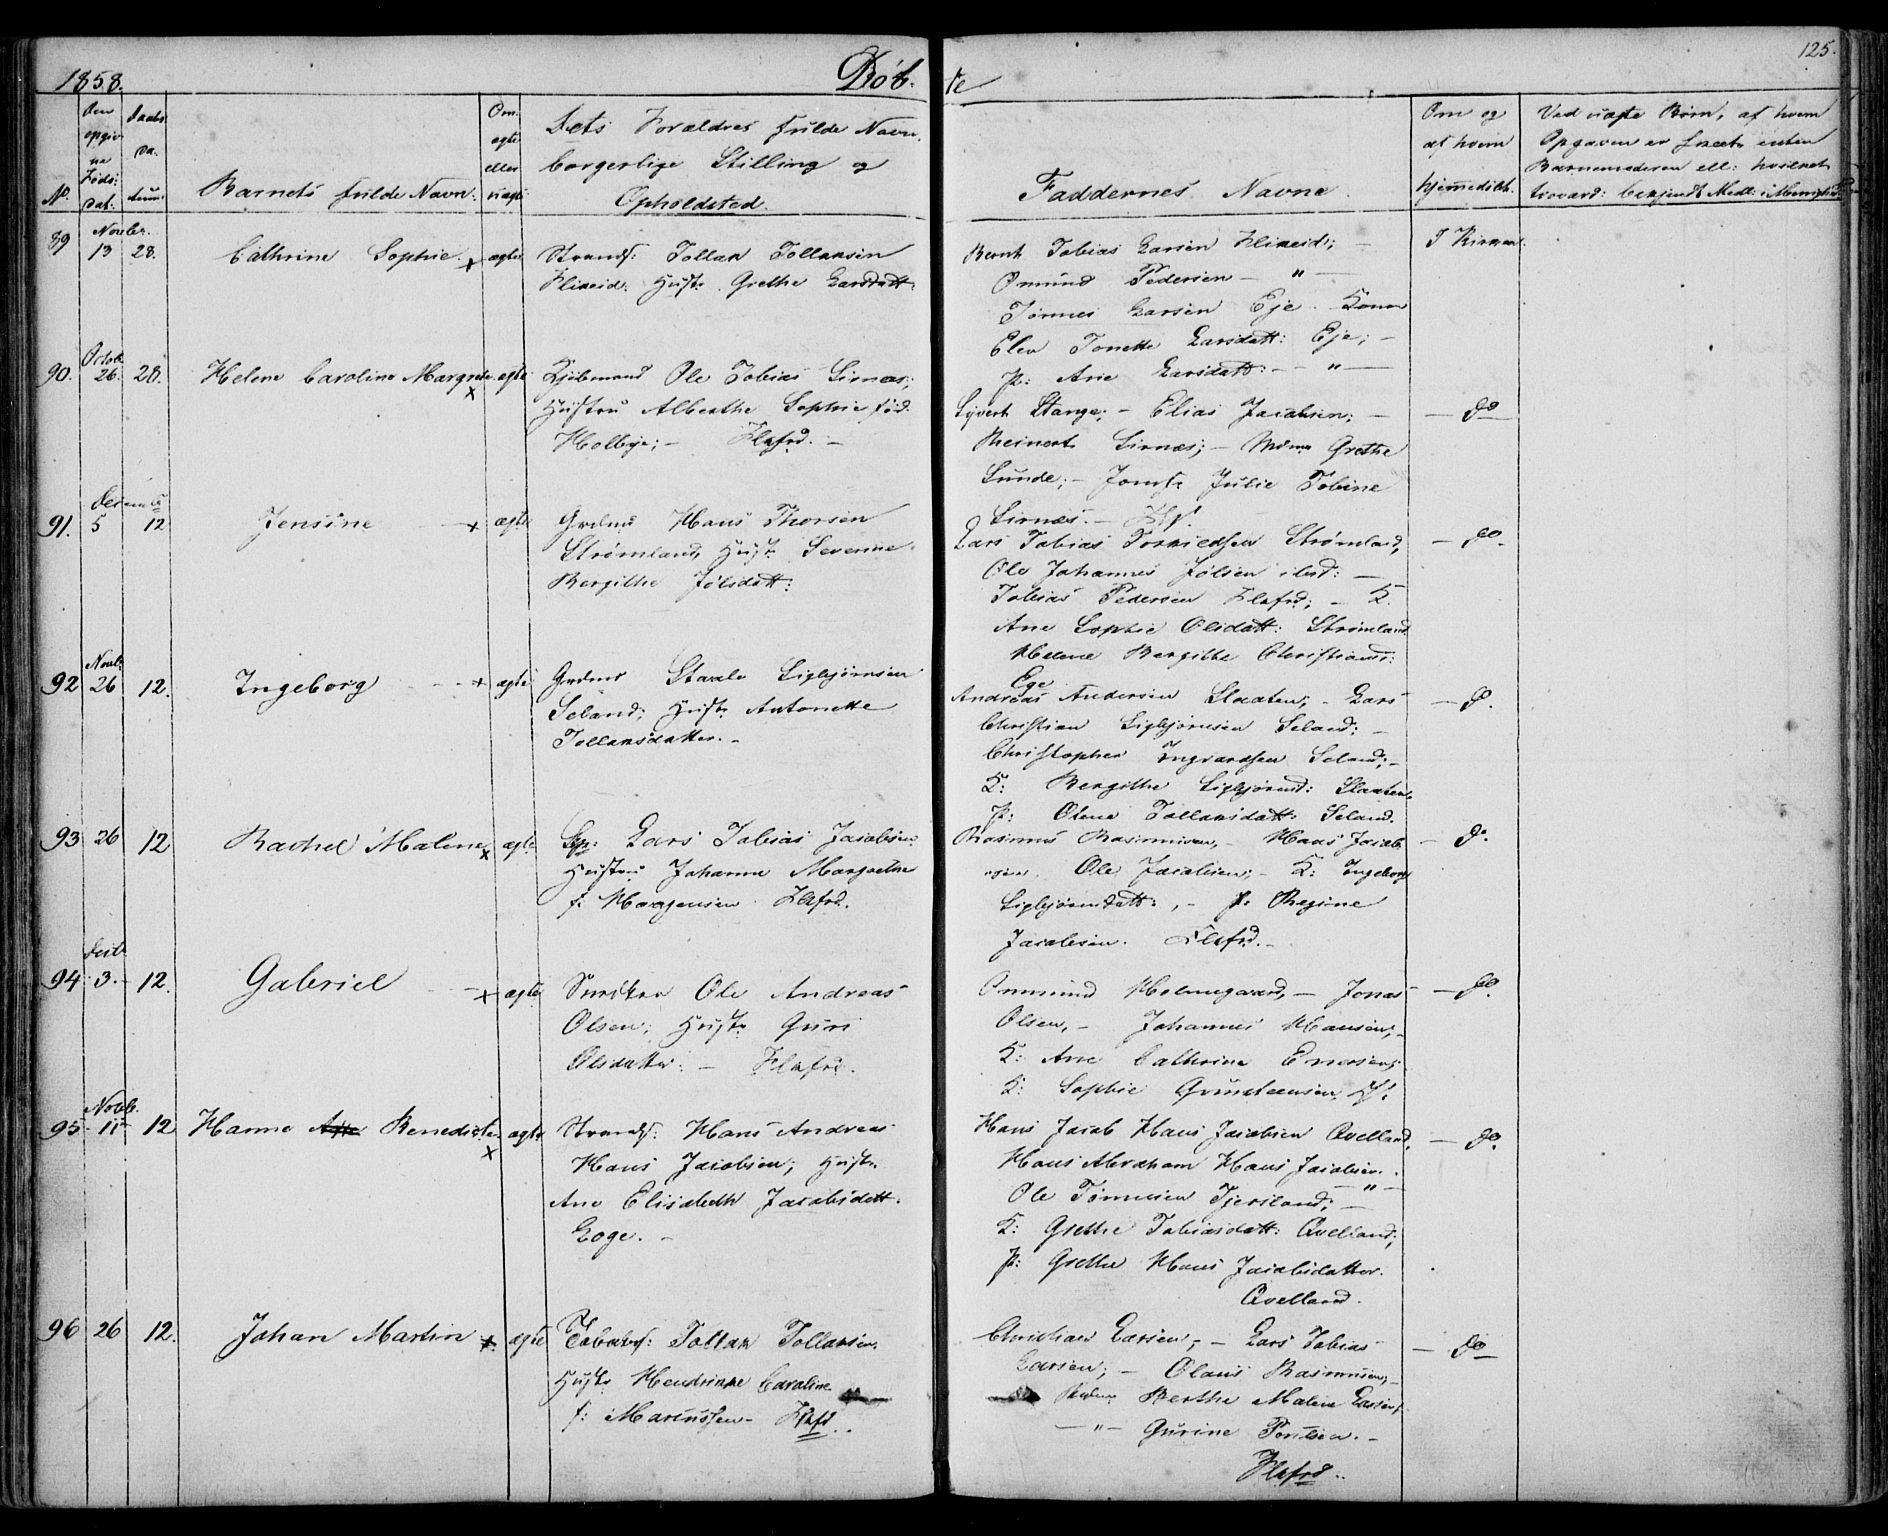 1858.
Døb-
te
125.
No.
Den opgivne Føds: Dat:
Daabs Datum
Barnets fulde Navn.
Om ægte eller uægte
Dets Forældres fulde Navn, borgerlige Stilling og Opholdsted.
Faddernes Navne
Om og af hvem hjemmedøbt.
Ved uægte Børn, af hvem
Opgaven er skeet, enten
Barnemoderen ell: hvilket
89
Novbr.
13
28.
Cathrine Sophie. x
ægte
Strands: Tollak Tollaksen
Flikeid: Hustr. Grethe Larsdatt:
Bernt Tobias Larsen Flikeid; —
Omund Pedersen — " —
Tørnes Larsen Eje. Kone
Elen Tonette Larsdatt: Eje; —
P: Ane Larsdatt: — " —
I Kirken.
90.
Octob.
26.
28.
Helene Caroline Margrete x
ægte
Kjøbmand Ole Tobias Sirnæs;
Hustru Alberthe Sophie fød.
Holbye; — Flkfrd. —
Sivert Stange; — Elias Jacobsen; —
Reinert Sirnæs; — Mdme Grethe
Sunde; — Jomfr. Julie Tobine
Sirnæs. — Flf.
— do —
91.
Decemb.
5
12
Jensine — x
ægte
Grdmd Hans Thorsen
Strømland, Hustr. Severine
Bergithe Jølsdatt:
Lars Tobias Torkildsen Strømland,
Ole Johannes Jølsen ibid: —
Tobias Pedersen Flkfrd; — K.
Ane Sophie Olsdatt: Strømland
Helene Bergithe Christians:
Ege
— do.
92
Novb:
26
12.
Ingeborg — x
ægte
Grdmd Staale Sigbjørnsen
Seland; Hustr. Antonette
Tollaksdatter. —
Andreas Andersen Slaaten; — Lars
Christian Sigbjørnsen Seland; —
Christopher Ingvardsen Seland; —
K: Bergithe Sigbjørnsd: Slaaten,
P: Olene Tollaksdatt: Seland.
— do.
93
26
12
Rachel Malene x
ægte
Lars Tobias Jacobsen
Hustru Johanne Margrethe
f: Haagensen Flkfrd.
Rasmus Rasmussen, — Hans Jacob-
sen. Ole Jacobsen; — K: Ingeborg
Sigbjørnsdatt:, — P: Regine
Jacobsen. Flkfrd. —
— do.
94
Decb
3. —
12.
Gabriel — x
ægte
Snedker Ole Andreas
Olsen; Hustr. Guri
Olsdatter: — Flkfrd.
Ommund Holmegaard, — Jonas
Olsen, — Johannes Hansen; —
K: Ane Cathrine
K: Sophie
— do.
95
Novb.
11
12
Hanne Benedicte x
ægte
Strands: Hans Andreas
Hans Jacobsen; Hustr.
Ane Elisabeth Jacobsdatt.
Loge. —
Hans Jacob Hans Jacobsen Qvelland,
Hans Abraham Hans Jacobsen. — " —
Ole Tønnesen Tjersland; —
K: Grethe Tobiasdatt: Qvelland;
P: Grethe Hans Jacobsdatter.
Qvelland.
— do.
96
26
12.
Johan Martin x
ægte
Tollak Tollaksen.
Hustr. Hendrikke Caroline
f: Marcussen — Flkfd.
Christian Larsen, — Lars Tobias
Larsen; — Olaus Rasmussen; —
Berthe Malene Larsen;
— " — Gurine
Flkfrd.
— do —